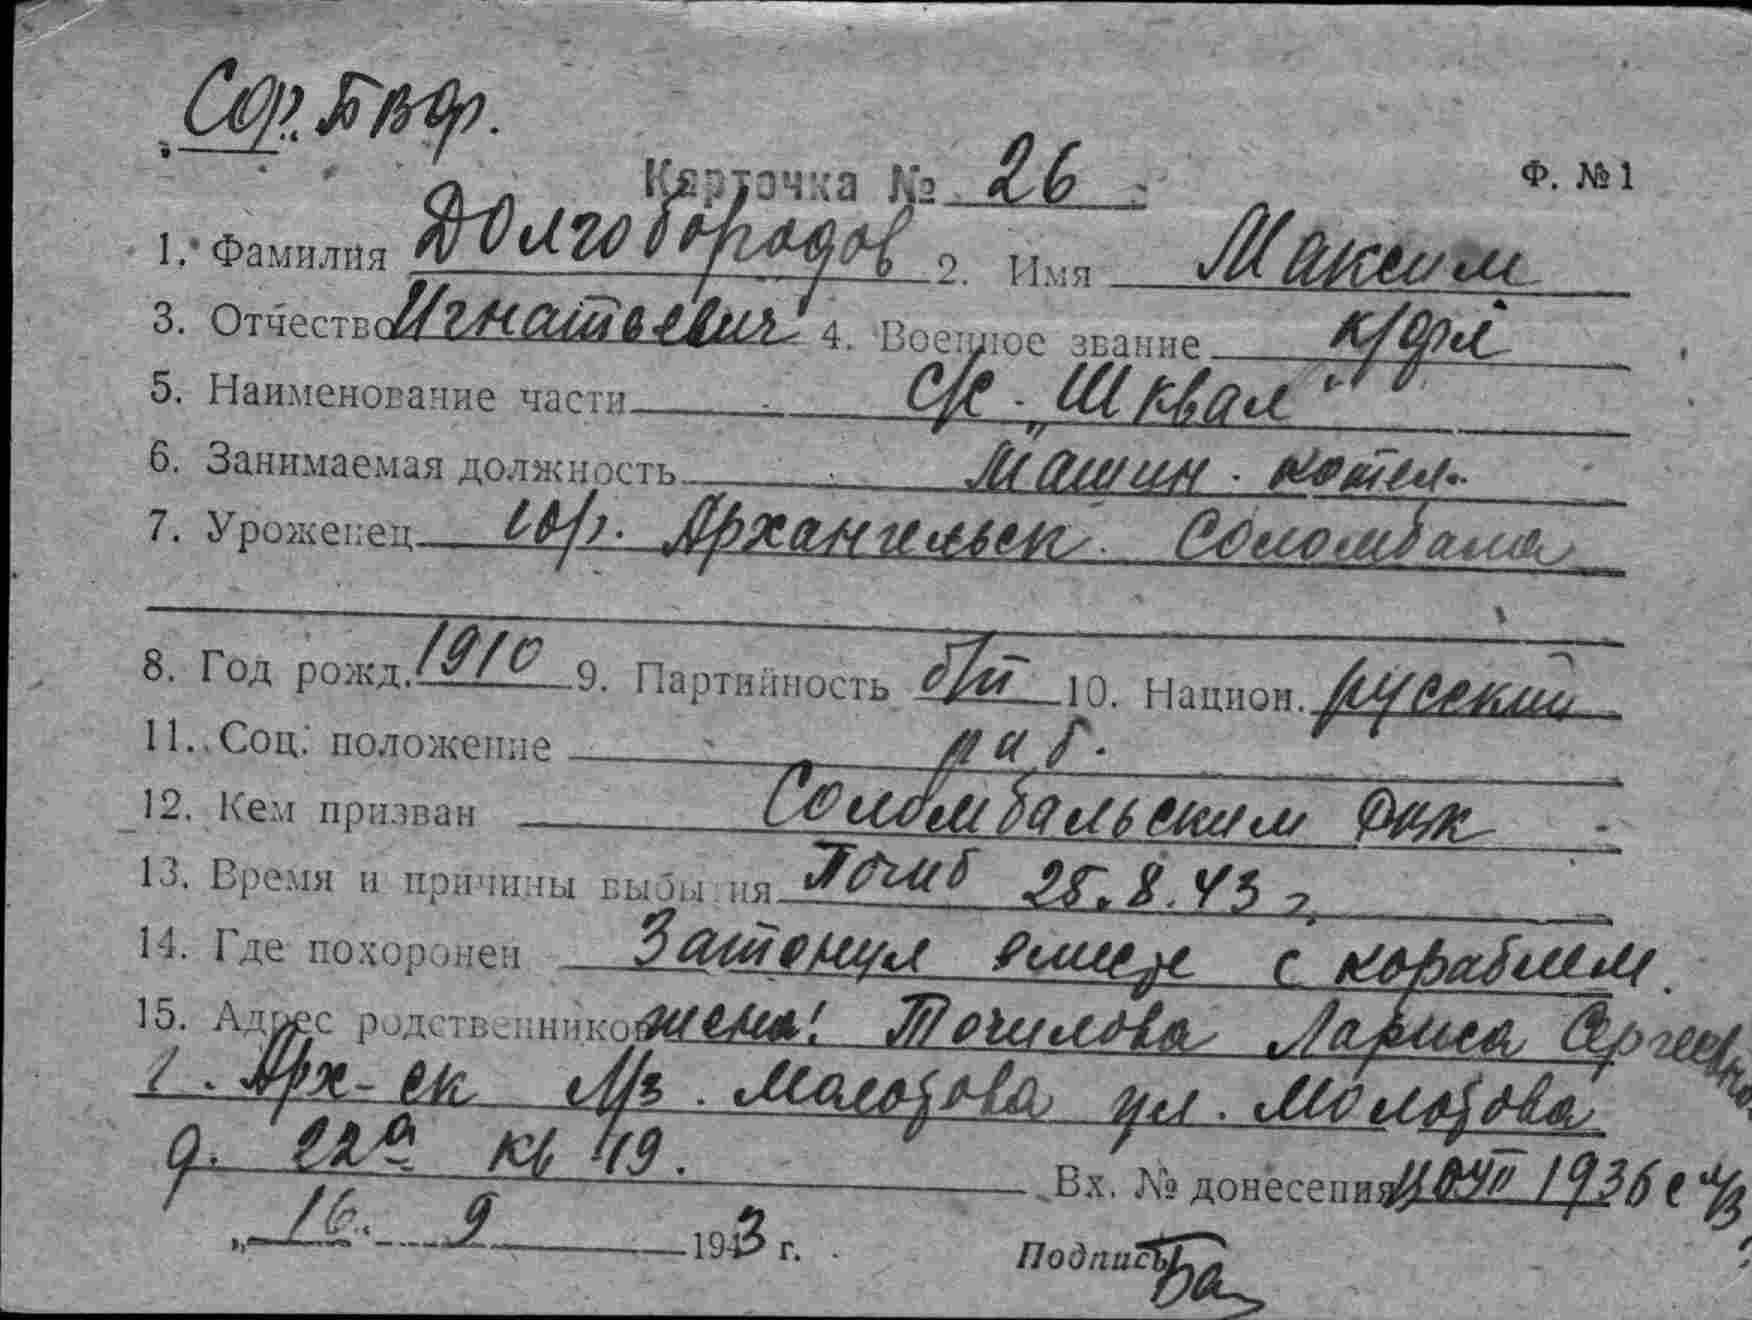 Сор. БВФ.
Карточка № 26 Ф. № 1
1. Фамилия Долгобородов 2. Имя Максим
3. Отчество Игнатьевич 4. Военное звание к/фл
5. Наименование части с/к. „Шквал"
6. Занимаемая должность Машин. котел.
7. Уроженец гор. Архангельск. Соломбала
8. Год рожд. 1910 9. Партийность б/п 10. Национ. русский
11. Соц. положение раб.
12. Кем призван Соломбальским РВК
13. Время и причины выбытия Погиб 25.8.43 г.
14. Где похоронен Затонул вместе с кораблем.
15. Адрес родственников жена: Точилова Лариса Сергеевна
г. Арх-ск л/з. Молотова ул. Молотова
д. 22а кв 19.
Вх. № донесения 1936с
„16" 9 1943 г. Подпись